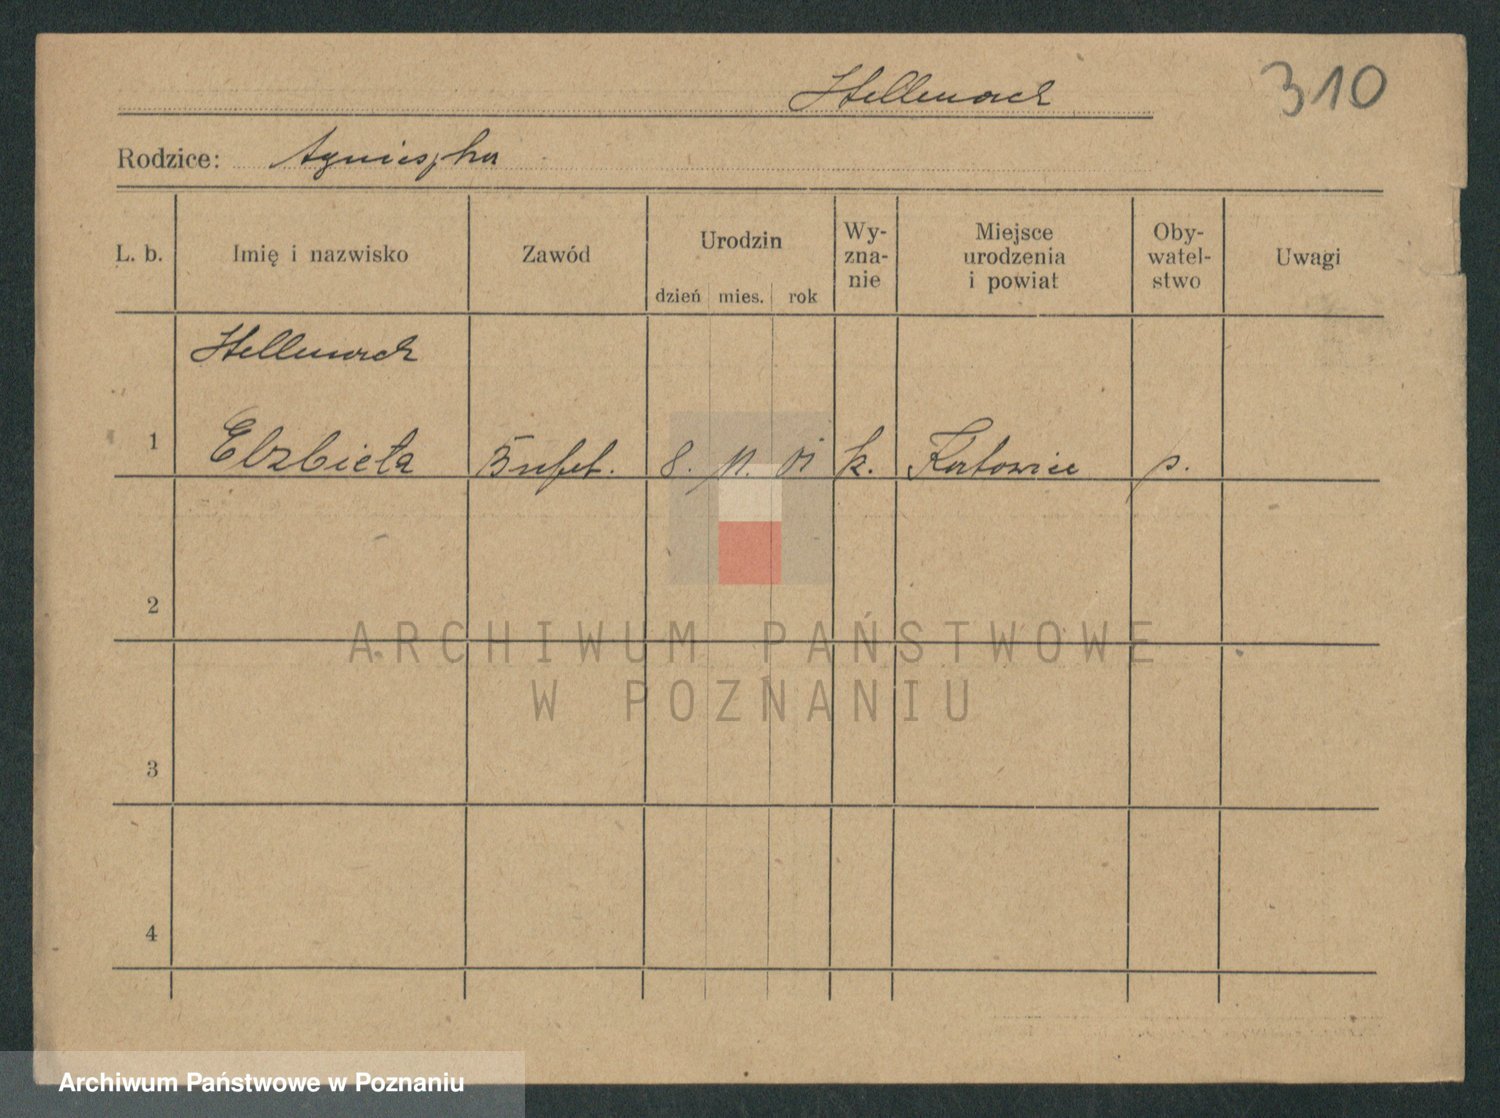 Hellenack
310
Rodzice: Agnieszka
L. b.
Imię i nazwisko
Zawód
Urodzin
dzień mies. rok
Wy-
zna-
nie
Miejsce
urodzenia
i powiat
Oby-
watel-
stwo
Uwagi
1
Elzbieta
Bufet.
8. 11. 01
k.
Katowice
p.
2
3
4
ARCHIWUM PAŃSTWOWE
W POZNANIU
Archiwum Państwowe w Poznaniu